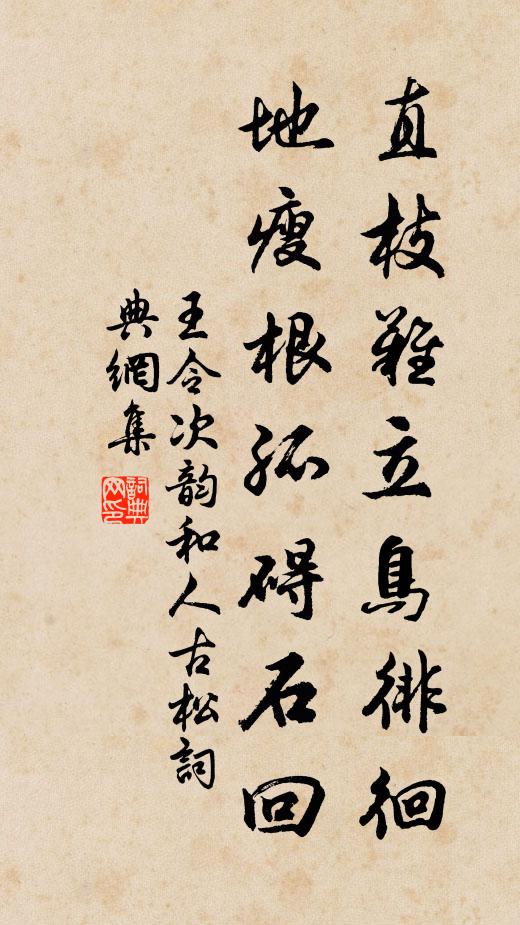 直枝難立鳥徘徊
地瘦根孤碍石回
王令次韵和人古松詞
典網集
詞典
网印